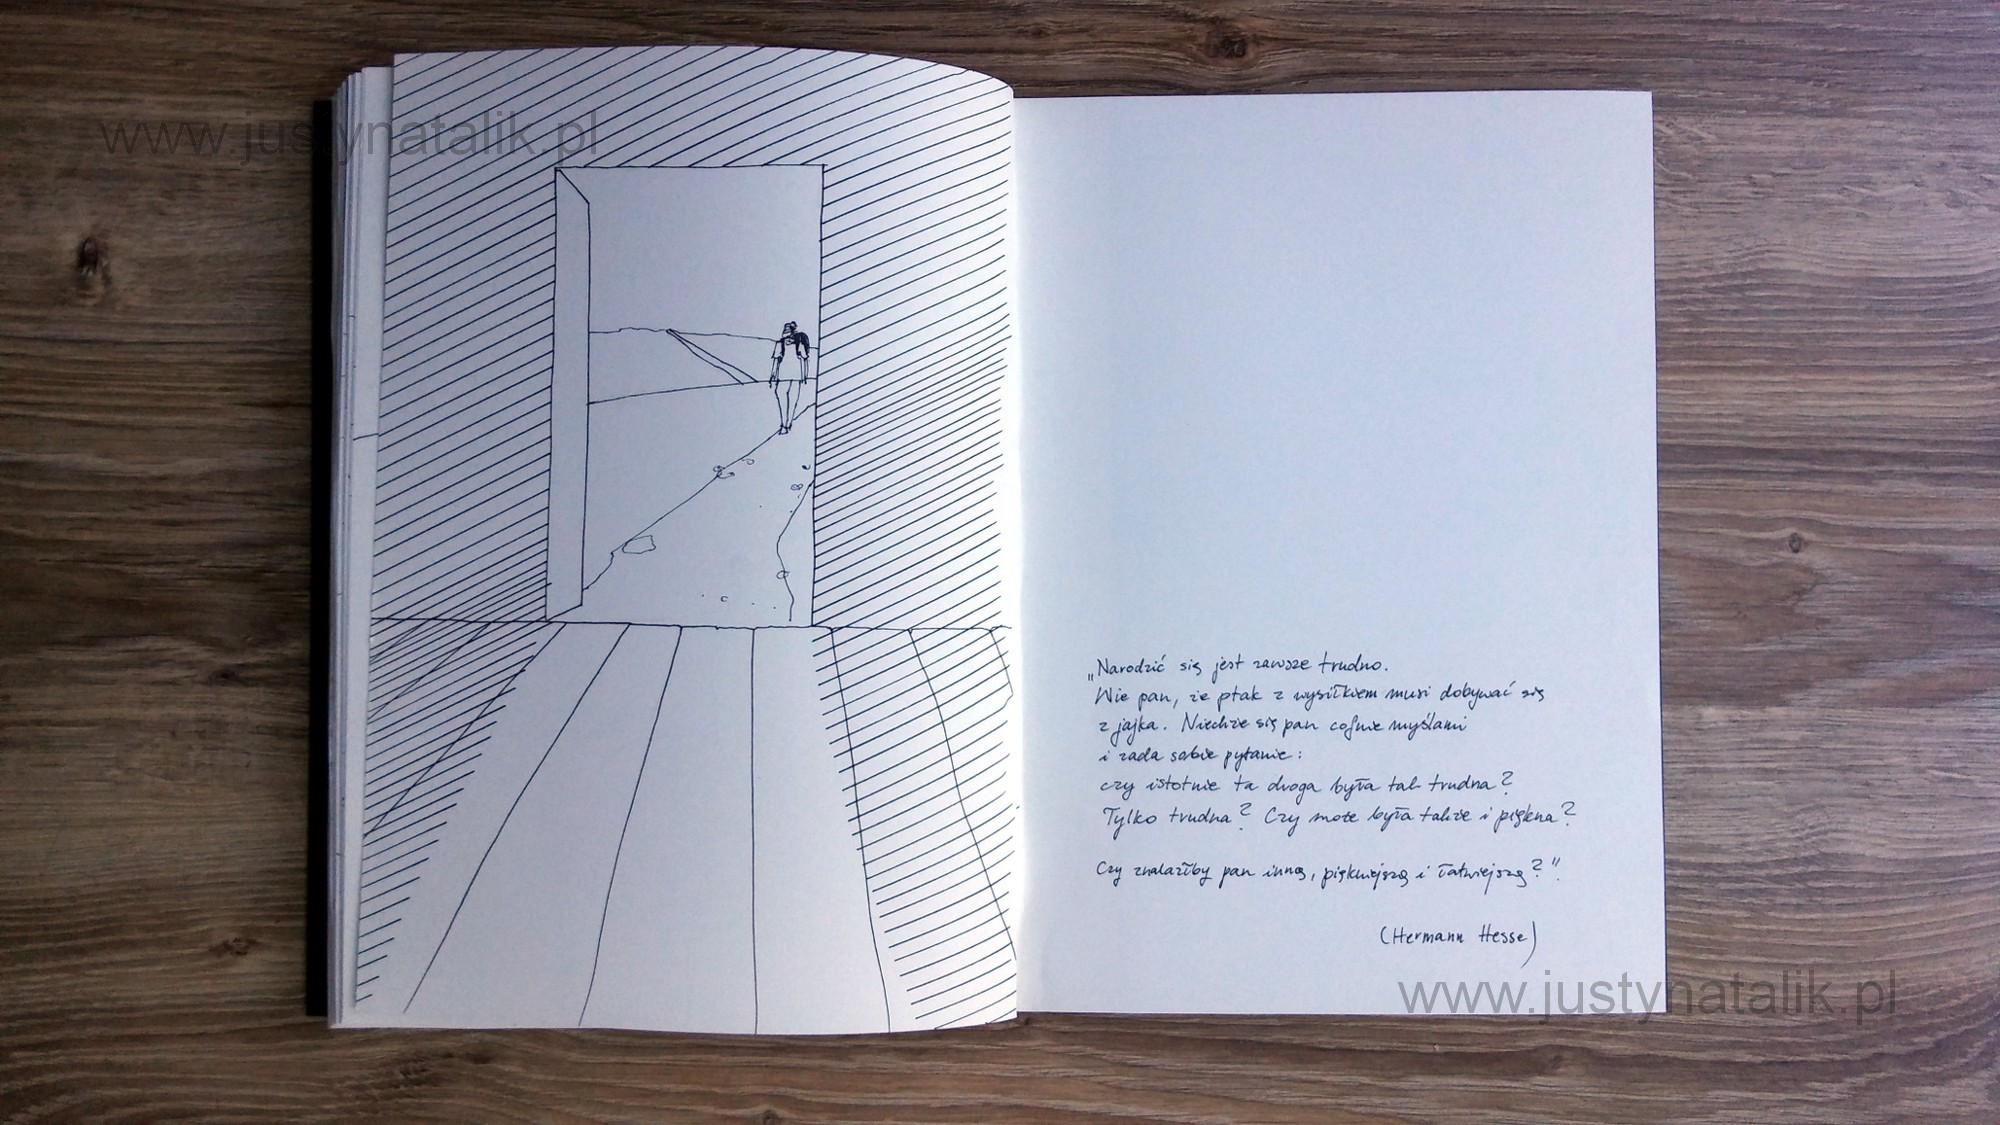 www.justynatalik.pl
„Narodzić się jest zawsze trudno.
Wie pan, że ptak z wysiłkiem musi dobywać się
z jajka. Niechże się pan cofnie myślami
i zada sobie pytanie:
czy istotnie ta droga była tak trudna?
Tylko trudna? Czy może była także i piękna?
Czy znalazłby pan inną, piękniejszą i łatwiejszą?".
(Hermann Hesse)
www.justynatalik.pl